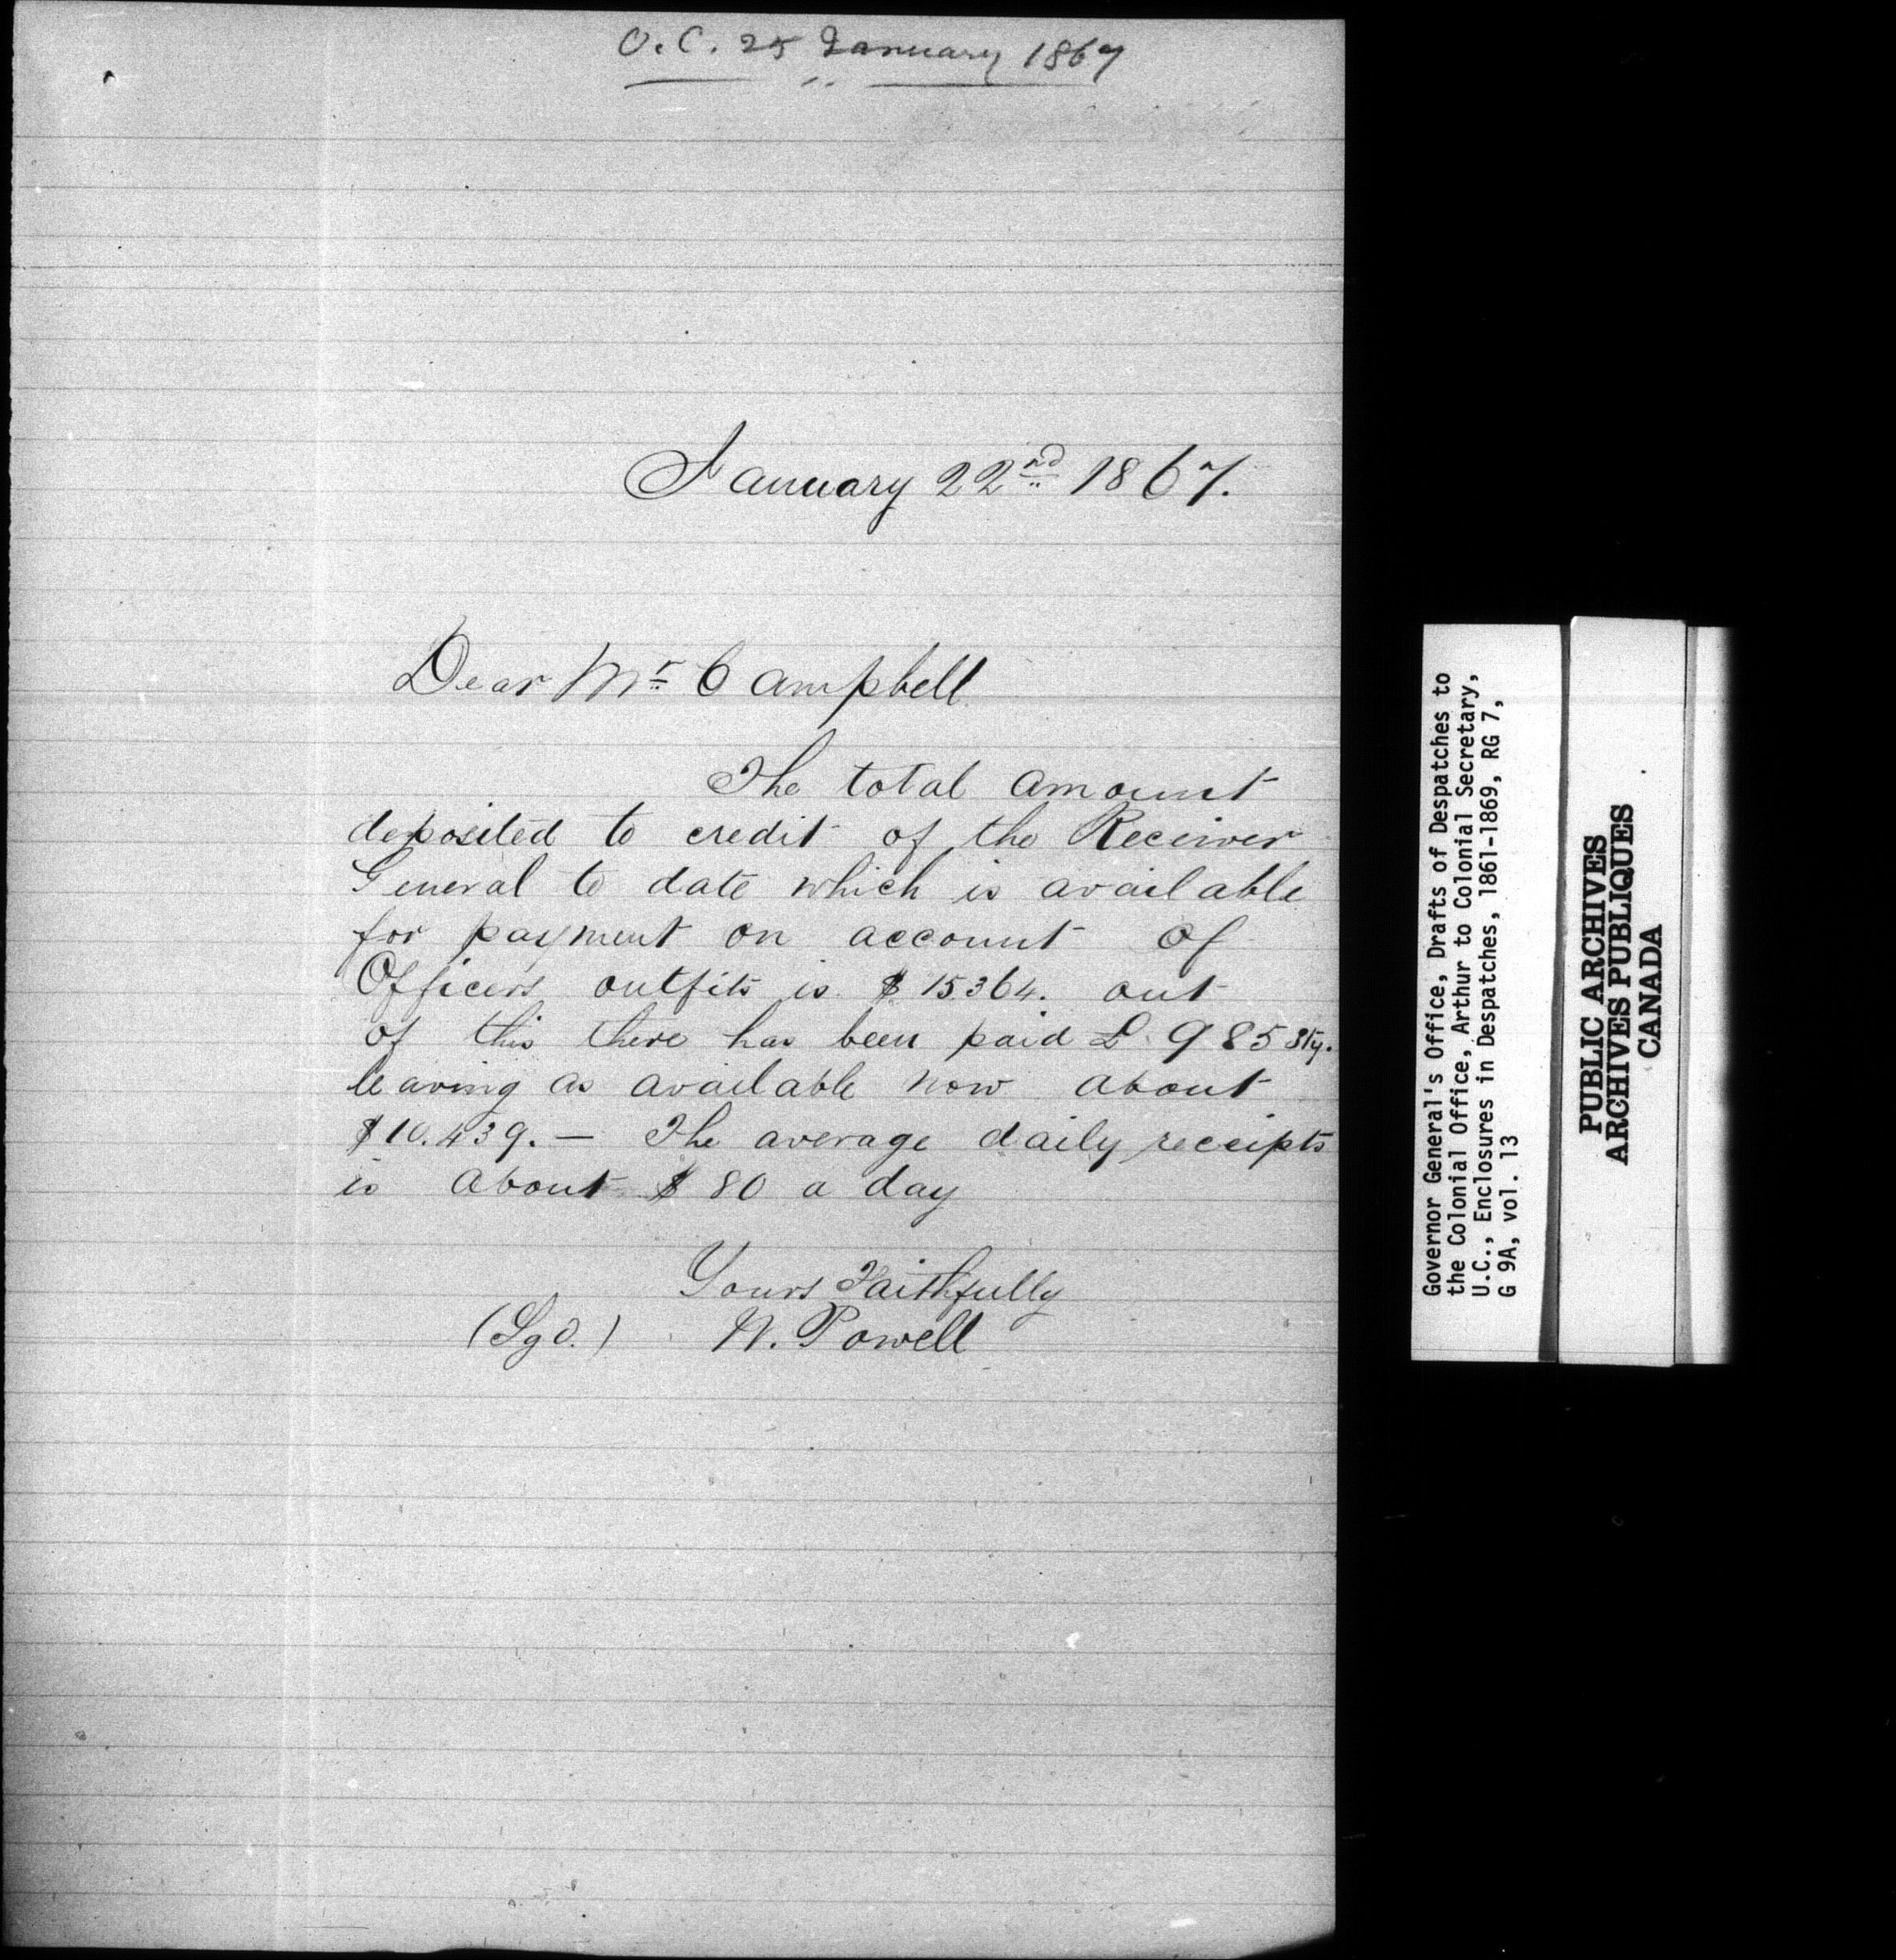 O.C. 25 January 1867
January 22nd 1867.
Dear Mr Campbell
The total amount
deposited to credit of the Receiver
General to date which is available
for payment on account of
Officers outfits is $15364. out
of this there has been paid £ 985 Stg.
leaving as available now about
$10.439. — The average daily receipts
is about $80 a day
Yours Faithfully
(Sgd.) W. Powell
Governor General's Office, Drafts of Despatches to
the Colonial Office, Arthur to Colonial Secretary,
U.C., Enclosures in Despatches, 1861-1869, RG 7,
G 9A, vol. 13
PUBLIC ARCHIVES
ARCHIVES PUBLIQUES
CANADA